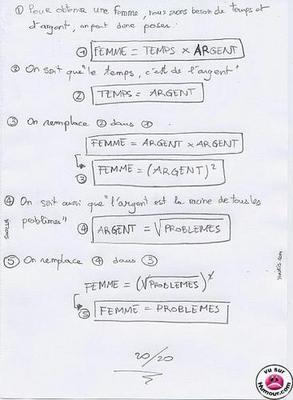 ① Pour obtenir une femme, nous avons besoin de temps et
d'argent, on peut donc poser :
① FEMME = TEMPS x ARGENT
② On sait que "le temps, c'est de l'argent"
② TEMPS = ARGENT
③ On remplace ② dans ①
FEMME = ARGENT x ARGENT
③ FEMME = (ARGENT)²
④ On sait aussi que "l'argent est la racine de tous les
problèmes"
④ ARGENT = √PROBLEMES
⑤ On remplace ④ dans ③
FEMME = (√PROBLEMES)²
⑤ FEMME = PROBLEMES
20/20
vu sur
Humour.com